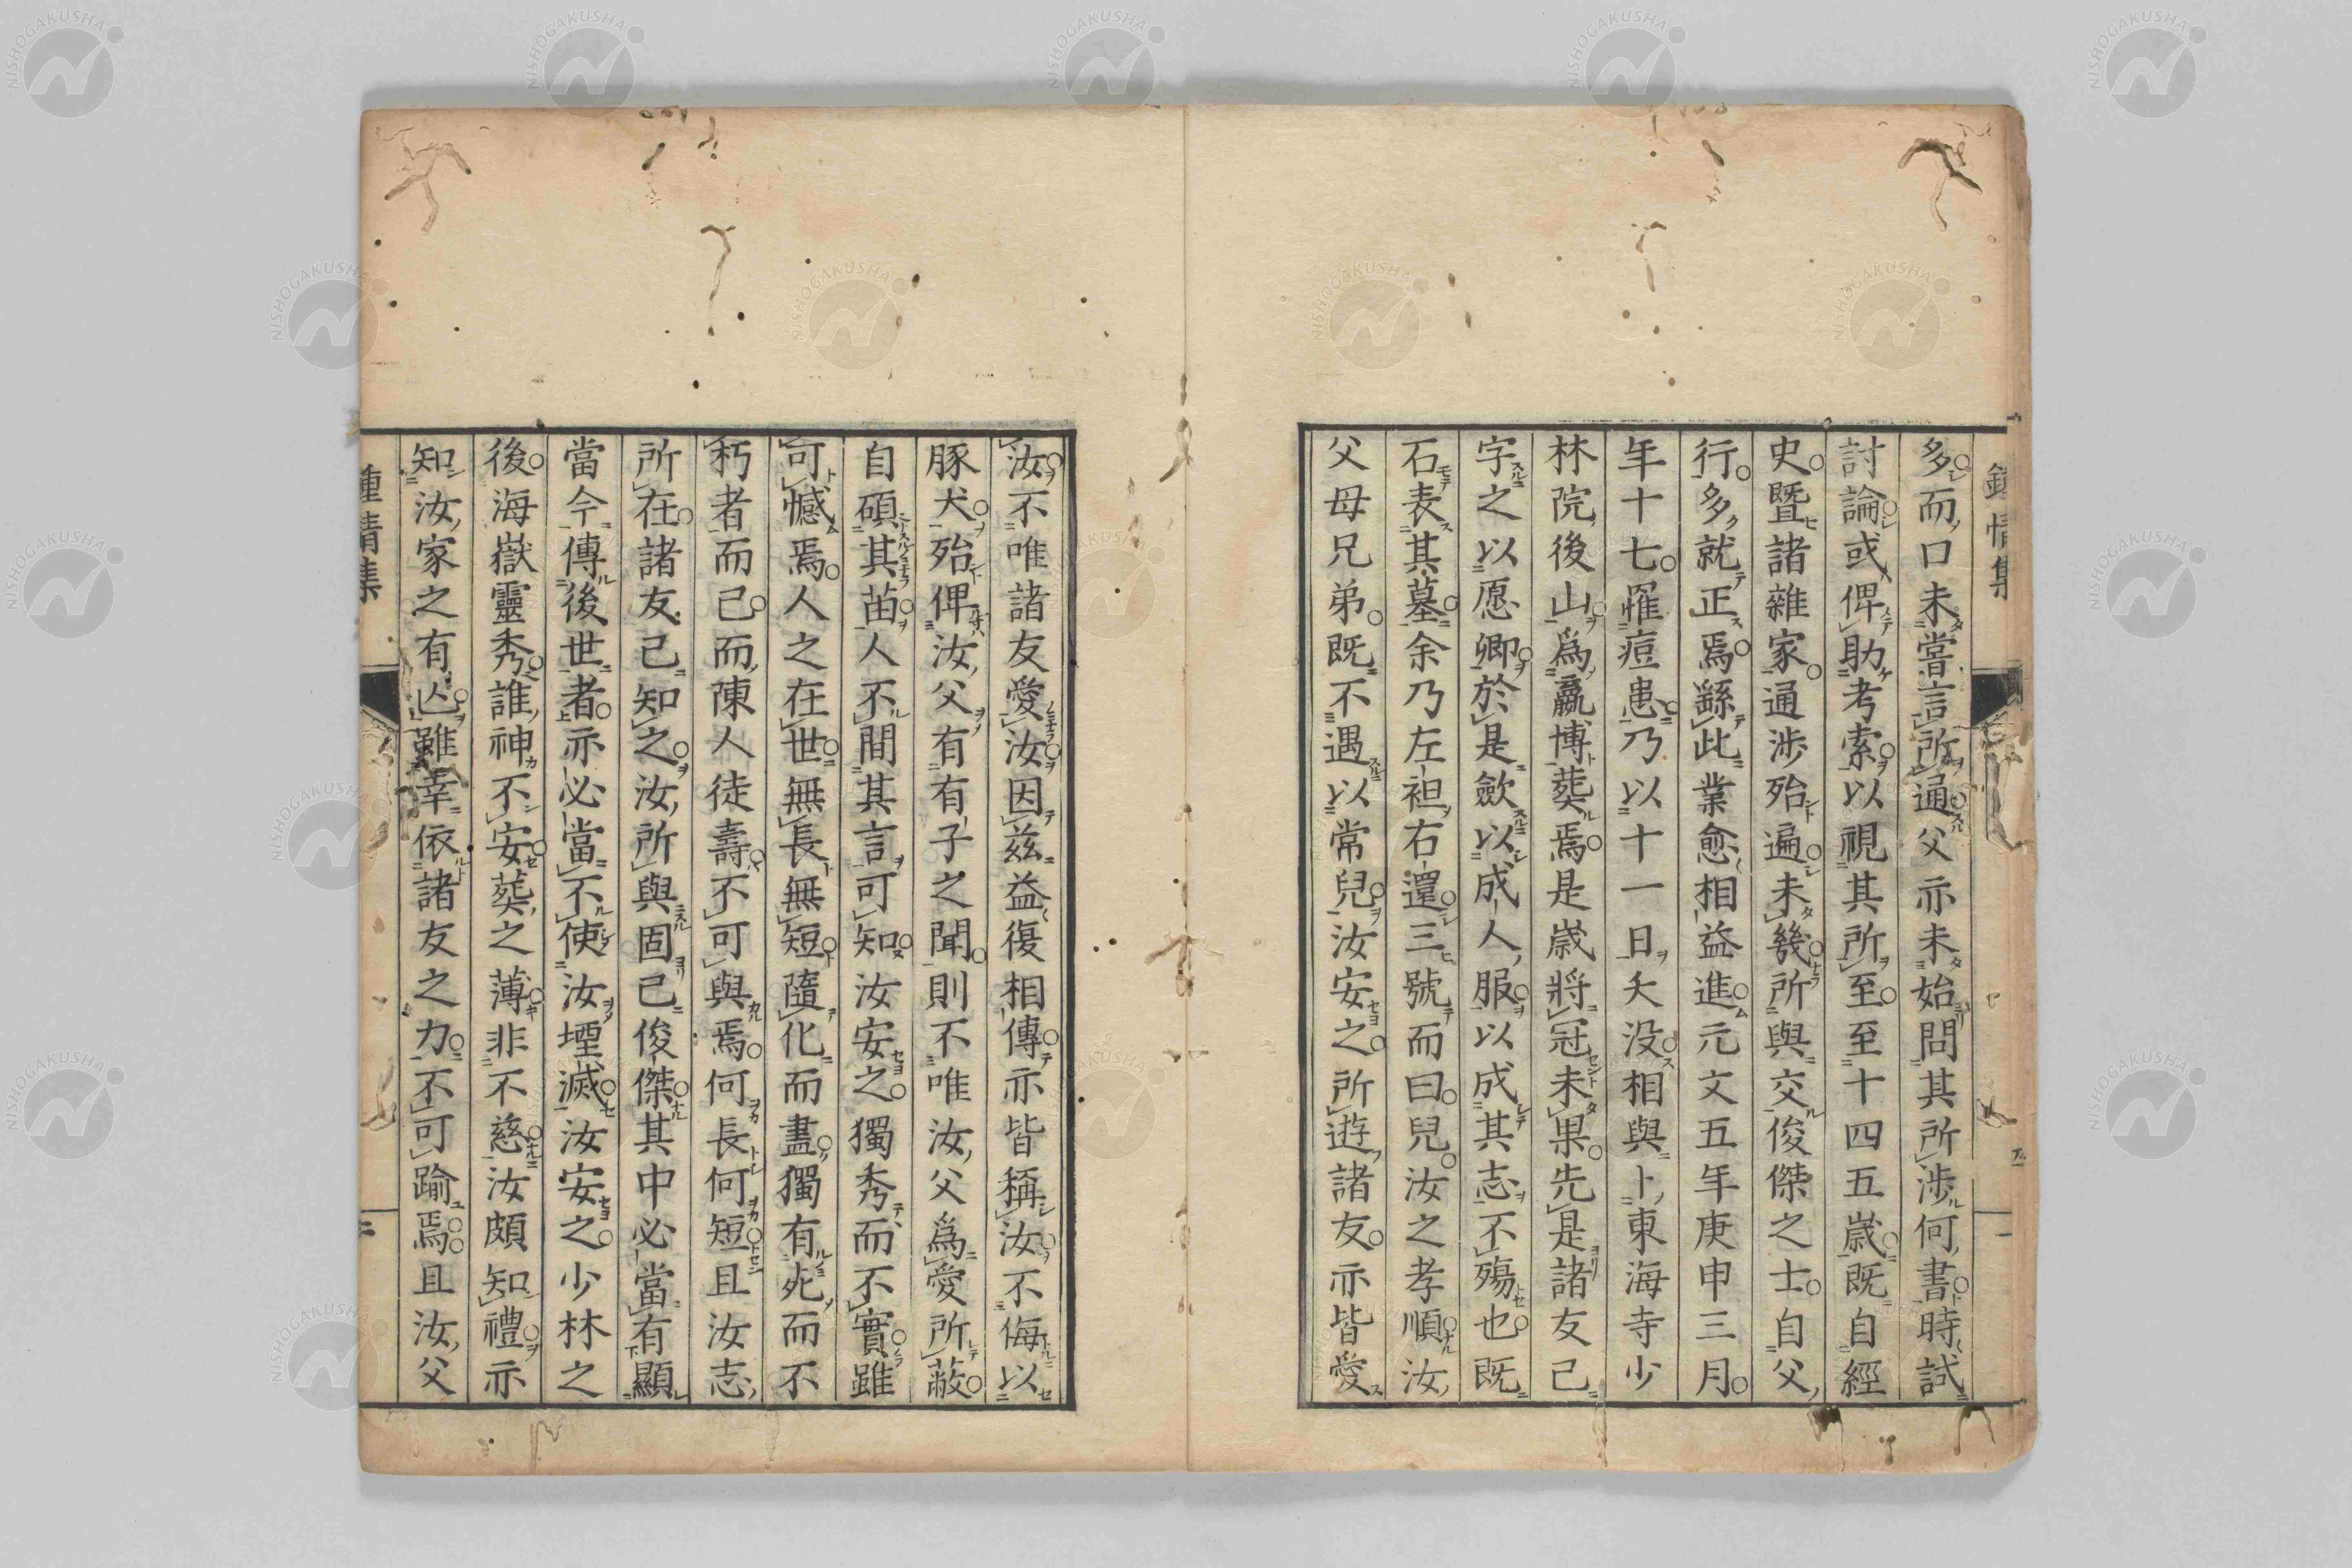 鍾情集
多而口未嘗言所通父亦未始問其所涉何書時試
討論或俾助考索以視其所至至十四五歲既自經
史暨諸雜家通涉殆遍未幾所與交俊傑之士自父
行多就正焉繇此業愈相益進元文五年庚申三月
年十七罹痘患乃以十一日夭没相與卜東海寺少
林院後山爲嬴博葬焉是歲將冠未果先是諸友已
字之以愿卿於是歛以成人服以成其志不殤也既
石表其墓余乃左袒右還三號而曰兒汝之孝順汝
父母兄弟既不遇以常兒汝安之所遊諸友亦皆愛
汝不唯諸友愛汝因茲益復相傳亦皆稱汝不侮以
豚犬殆俾汝父有有子之聞則不唯汝父爲愛所蔽
自碩其苗人不間其言可知汝安之獨秀而不實雖
可憾焉人之在世無長無短隨化而盡獨有死而不
朽者而已而陳人徒壽不可與焉何長何短且汝志
所在諸友已知之汝所與固已俊傑其中必當有顯
當今傳後世者亦必當不使汝堙滅汝安之少林之
後海嶽靈秀誰神不安葬之薄非不慈汝頗知禮亦
知汝家之有亾雖幸依諸友之力不可踰焉且汝父
鍾情集
二
NISHOGAKUSHA